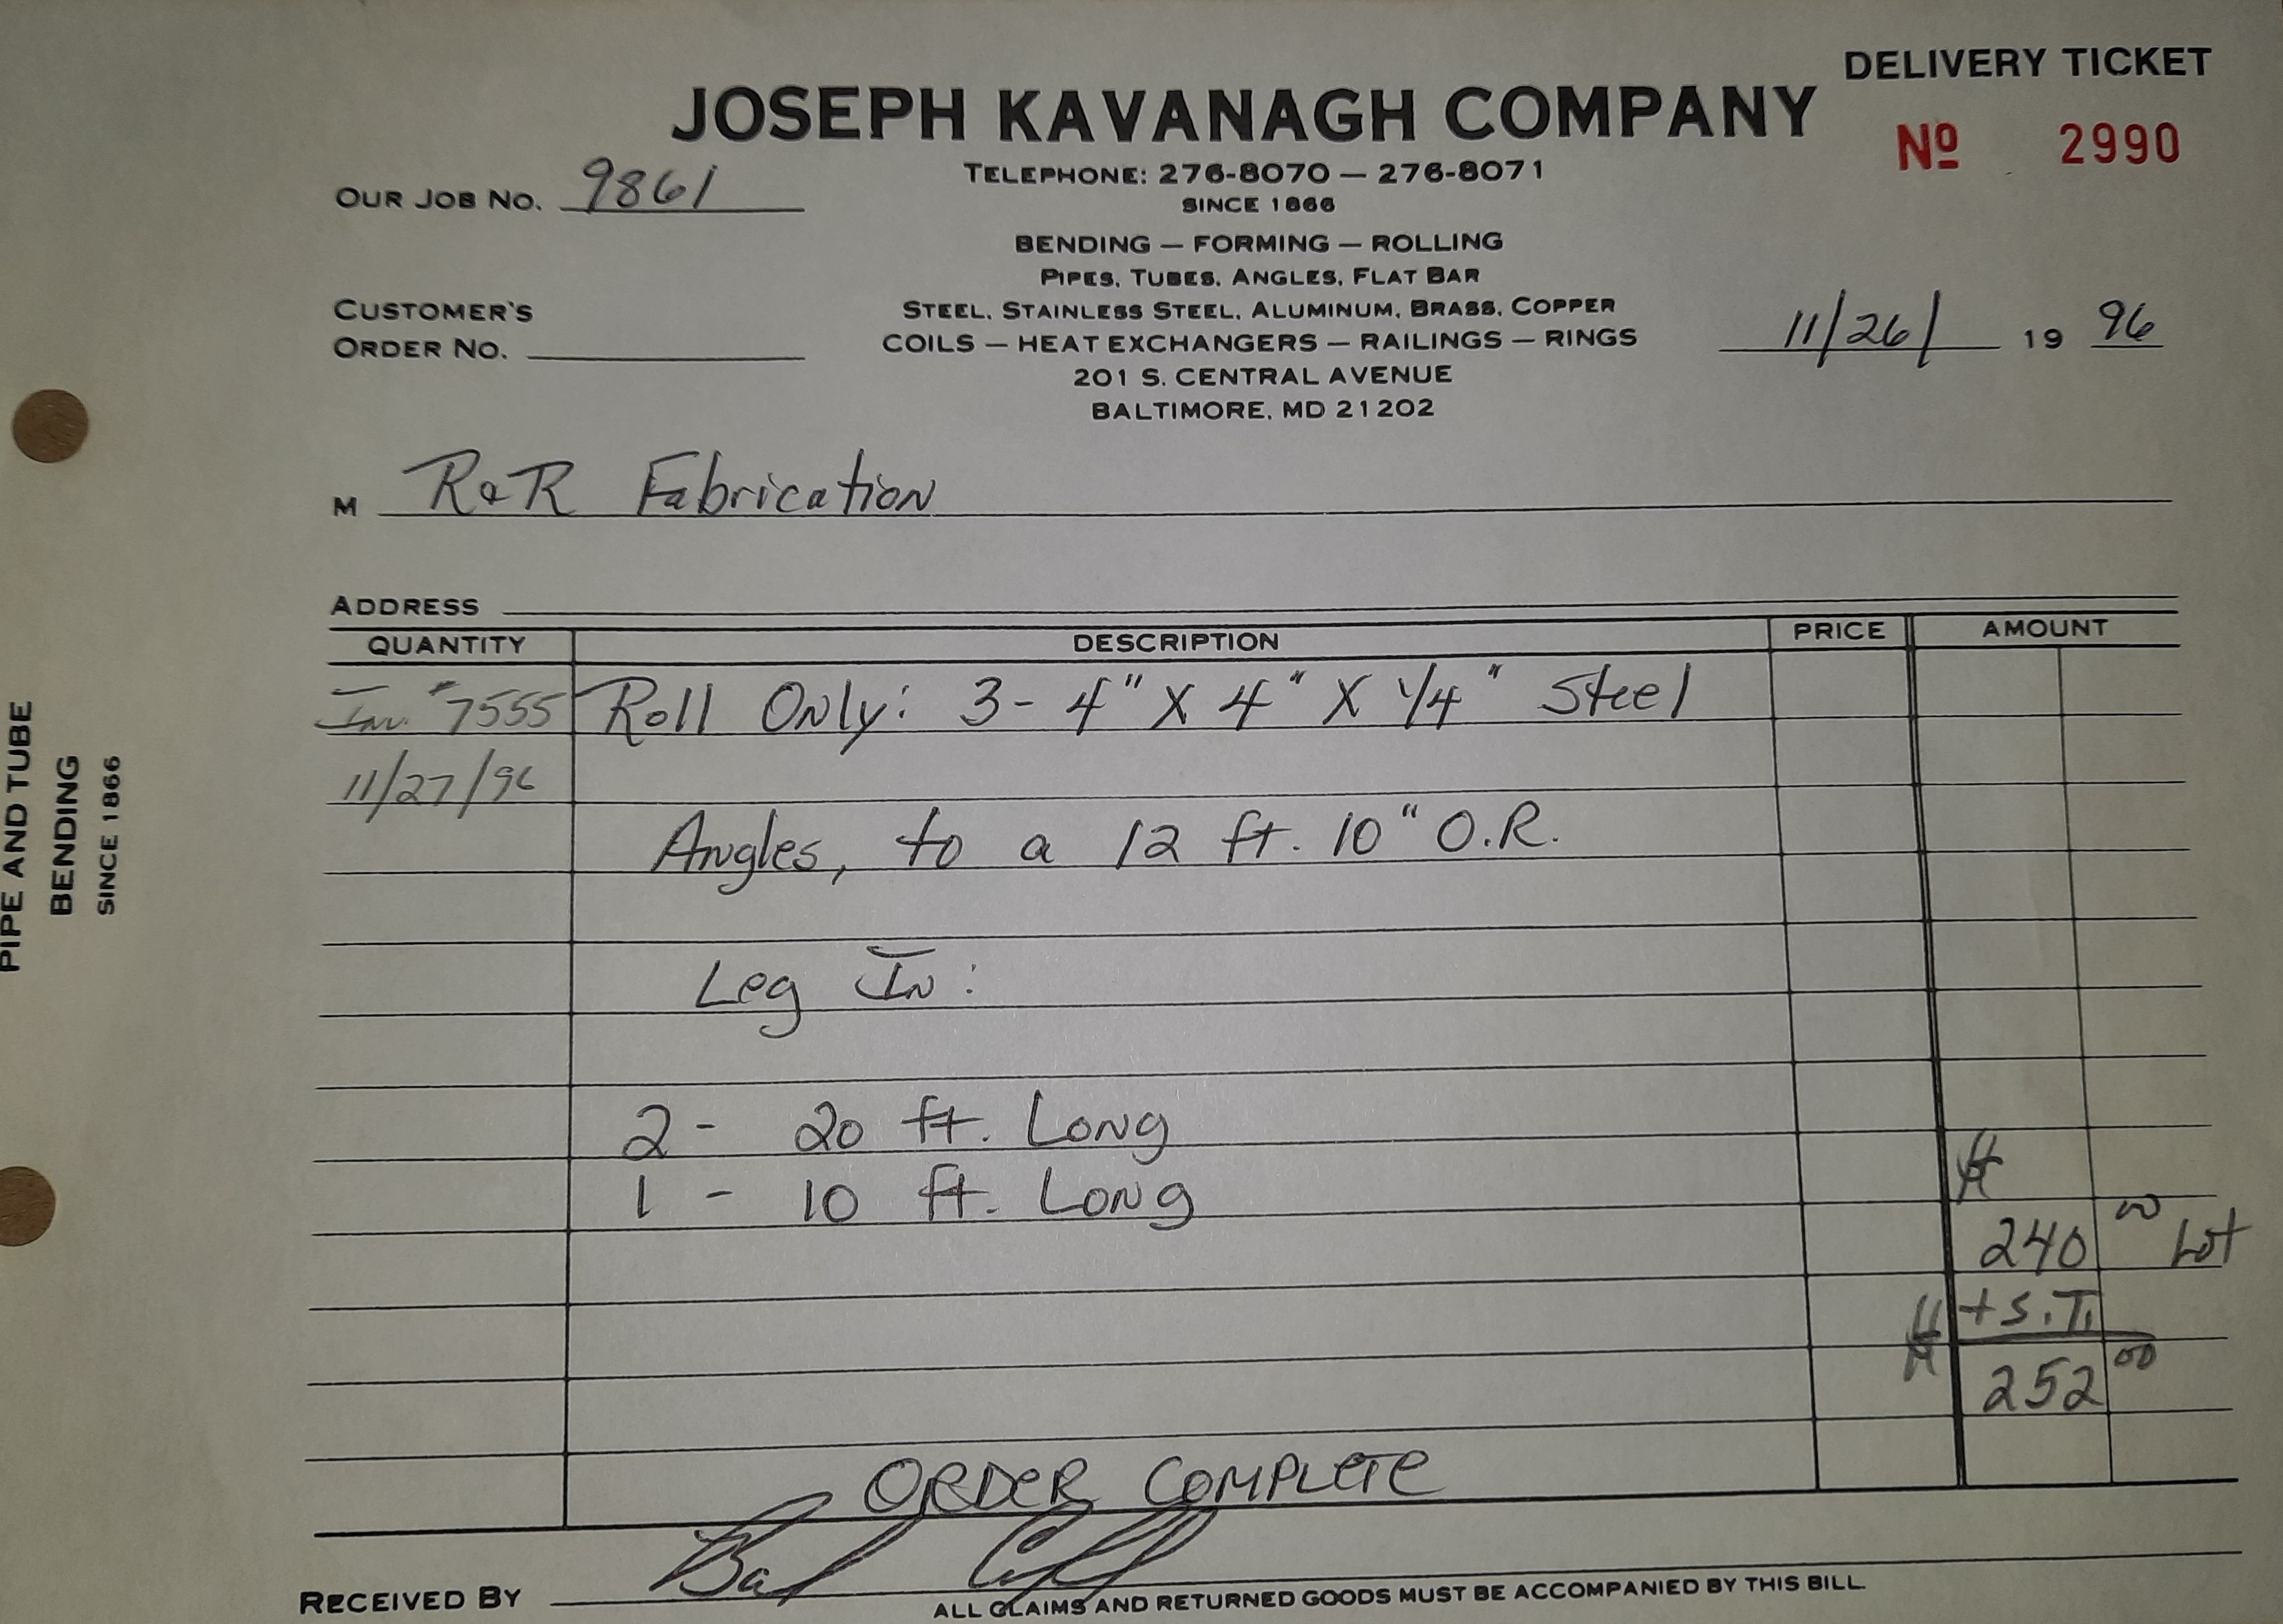 DELIVERY TICKET
JOSEPH KAVANAGH COMPANY
Nº 2990
TELEPHONE: 276-8070 — 276-8071
OUR JOB NO. 9861
SINCE 1866
BENDING — FORMING — ROLLING
PIPES, TUBES, ANGLES, FLAT BAR
CUSTOMER'S
ORDER NO.
STEEL, STAINLESS STEEL, ALUMINUM, BRASS, COPPER
COILS — HEAT EXCHANGERS — RAILINGS — RINGS
11/26/ 19 96
201 S. CENTRAL AVENUE
BALTIMORE, MD 21202
M R&R Fabrication
ADDRESS
QUANTITY DESCRIPTION PRICE AMOUNT
Inv. #7555 Roll Only: 3- 4" X 4" X 1/4" Steel
11/27/96
Angles, to a 12 ft. 10" O.R.
Leg In:
2 - 20 ft. Long
1 - 10 ft. Long
240 00 Lot
+ S.T.
252 00
ORDER COMPLETE
RECEIVED BY
ALL CLAIMS AND RETURNED GOODS MUST BE ACCOMPANIED BY THIS BILL.
PIPE AND TUBE
BENDING
SINCE 1866